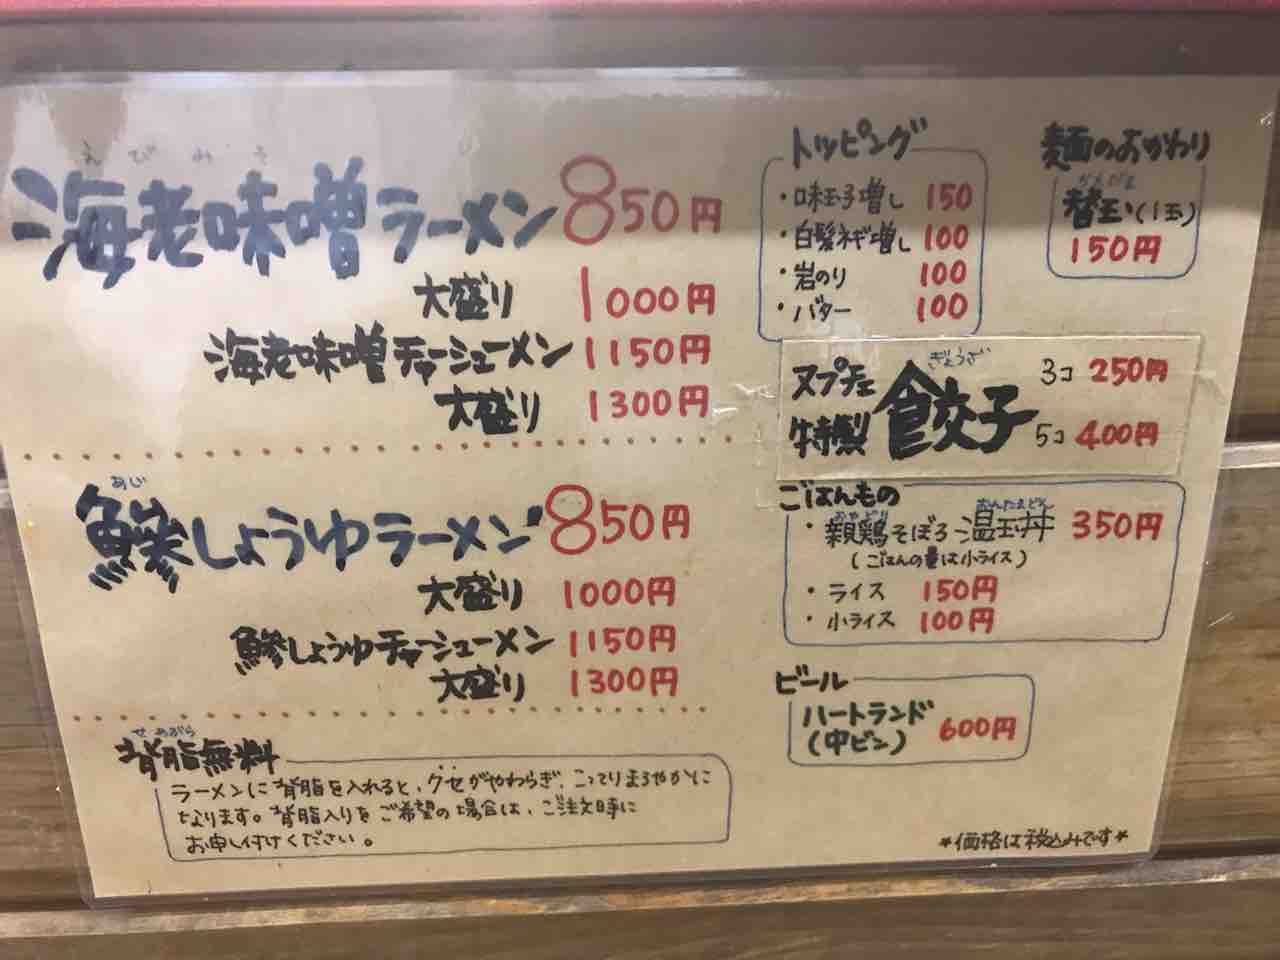 えびみそ
海老味噌ラーメン 850円
大盛り 1000円
海老味噌チャーシューメン 1150円
大盛り 1300円
あじ
鯵しょうゆラーメン 850円
大盛り 1000円
鯵しょうゆチャーシューメン 1150円
大盛り 1300円
せあぶら
背脂無料
ラーメンに背脂を入れると、クセがやわらぎ、こってりまろやかに
なります。背脂入りをご希望の場合は、ご注文時に
お申し付けください。
トッピング
・味玉子増し 150
・白髪ネギ増し 100
・岩のり 100
・バター 100
麺のおかわり
かえだま
替玉(1玉)
150円
ぎょうざ
ヌプチェ
特製
餃子
3コ 250円
5コ 400円
ごはんもの
おやどり おんたまどん
・親鶏そぼろ温玉丼 350円
(ごはんの量は小ライス)
・ライス 150円
・小ライス 100円
ビール
ハートランド
(中ビン) 600円
*価格は税込みです*